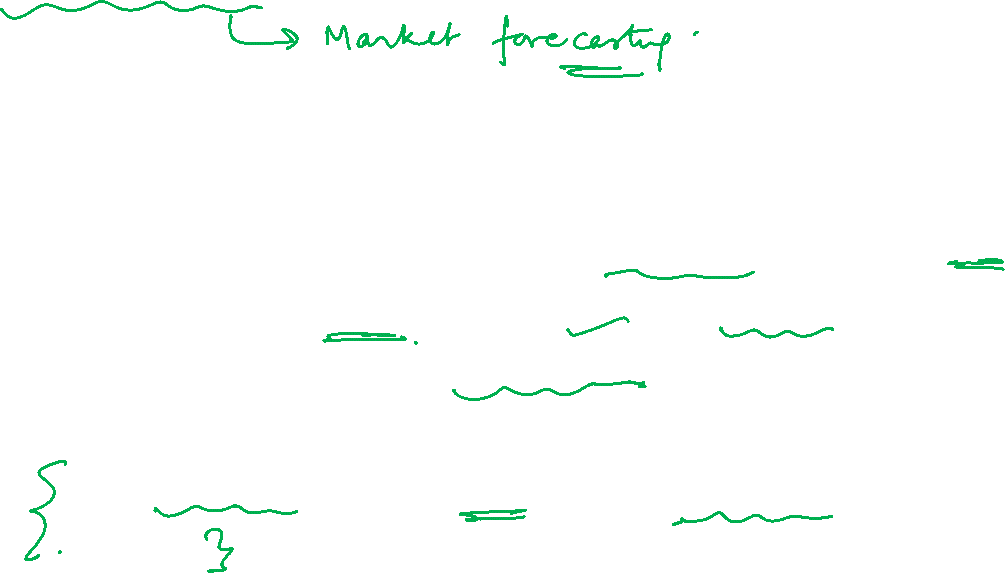 Market forecasting.